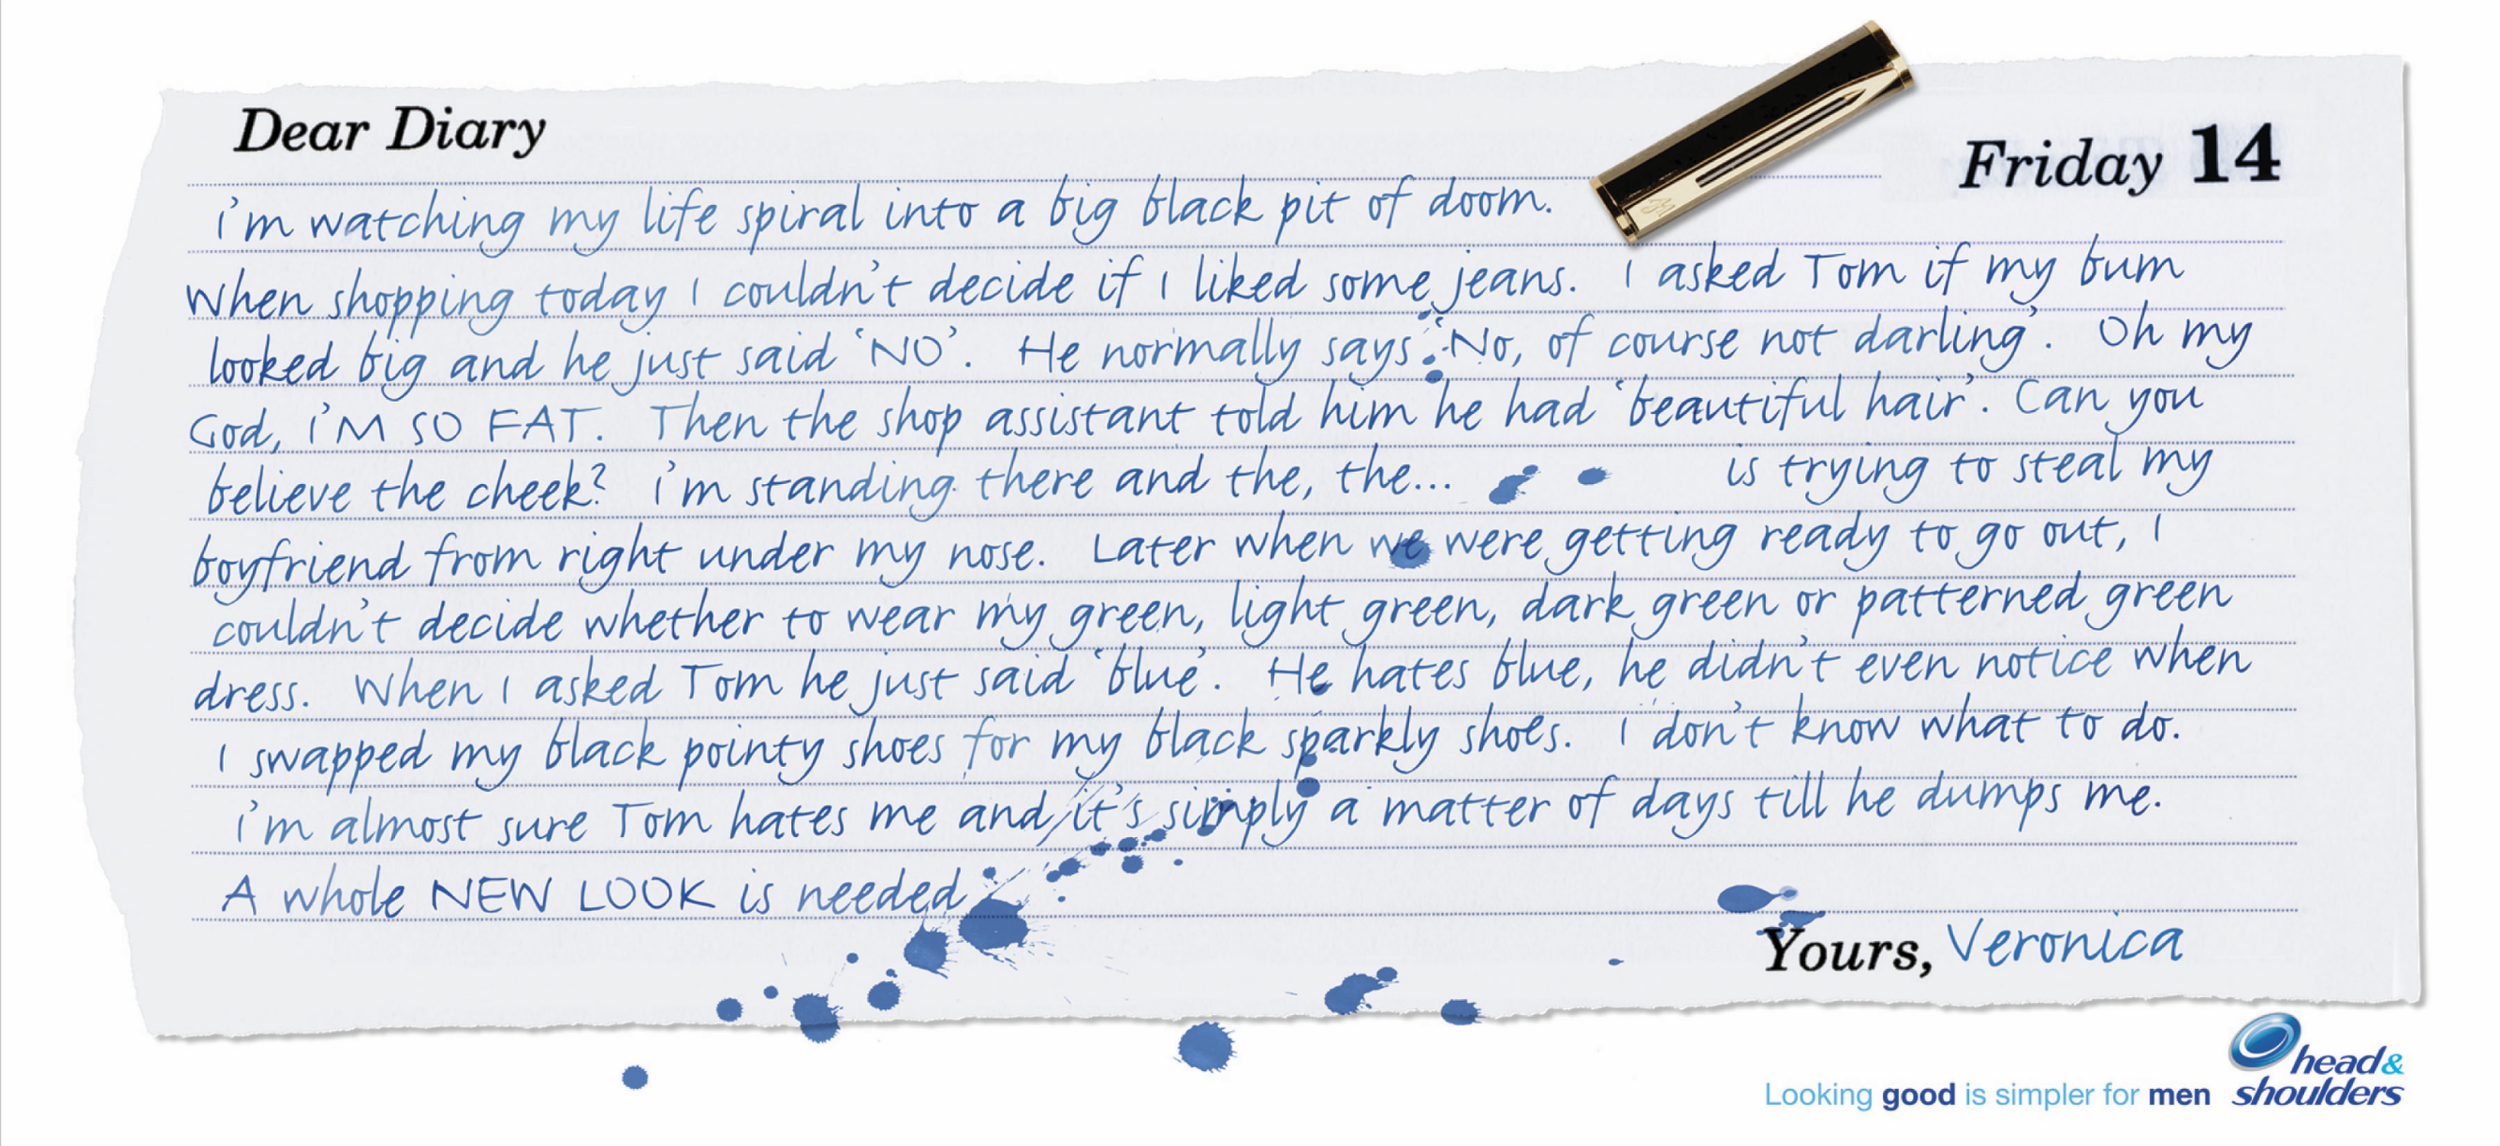 Dear Diary
Friday 14
i'm watching my life spiral into a big black pit of doom.
When shopping today I couldn't decide if I liked some jeans. I asked Tom if my bum
looked big and he just said 'NO'. He normally says 'No, of course not darling'. Oh my
God, i'M SO FAT. Then the shop assistant told him he had 'beautiful hair'. Can you
believe the cheek? i'm standing there and the, the... is trying to steal my
boyfriend from right under my nose. Later when we were getting ready to go out, I
couldn't decide whether to wear my green, light green, dark green or patterned green
dress. When I asked Tom he just said 'blue'. He hates blue, he didn't even notice when
I swapped my black pointy shoes for my black sparkly shoes. I don't know what to do.
i'm almost sure Tom hates me and it's simply a matter of days till he dumps me.
A whole NEW LOOK is needed
Yours, Veronica
Looking good is simpler for men
head&
shoulders